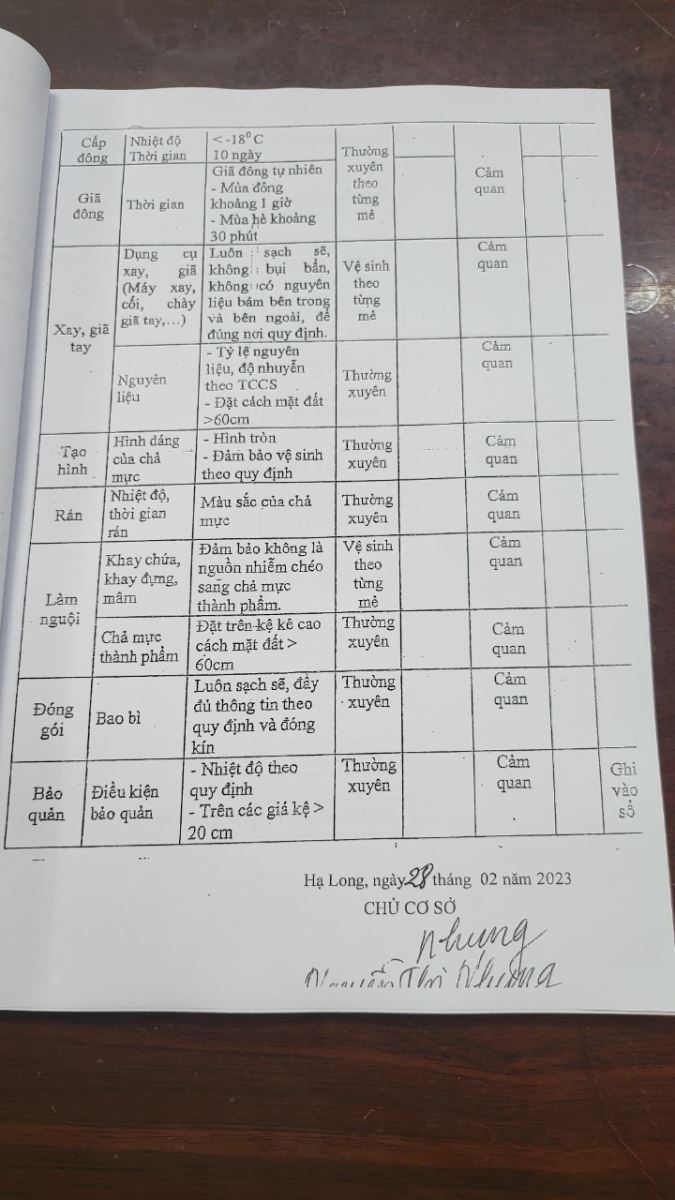 Cấp đông
Nhiệt độ
Thời gian
< -18⁰ C
10 ngày
Thường xuyên theo từng mẻ
Cảm quan
Giã đông
Thời gian
Giã đông tự nhiên
- Mùa đông khoảng 1 giờ
- Mùa hè khoảng 30 phút
Xay, giã tay
Dụng cụ xay, giã (Máy xay, cối, chày giã tay,...)
Luôn sạch sẽ, không bụi bẩn, không có nguyên liệu bám bên trong và bên ngoài, để đúng nơi quy định.
Vệ sinh theo từng mẻ
Cảm quan
Nguyên liệu
- Tỷ lệ nguyên liệu, độ nhuyễn theo TCCS
- Đặt cách mặt đất >60cm
Thường xuyên
Cảm quan
Tạo hình
Hình dáng của chả mực
- Hình tròn
- Đảm bảo vệ sinh theo quy định
Thường xuyên
Cảm quan
Rán
Nhiệt độ, thời gian rán
Màu sắc của chả mực
Thường xuyên
Cảm quan
Làm nguội
Khay chứa, khay đựng, mâm
Đảm bảo không là nguồn nhiễm chéo sang chả mực thành phẩm.
Vệ sinh theo từng mẻ
Cảm quan
Chả mực thành phẩm
Đặt trên kệ kê cao cách mặt đất > 60cm
Thường xuyên
Cảm quan
Đóng gói
Bao bì
Luôn sạch sẽ, đầy đủ thông tin theo quy định và đóng kín
Thường xuyên
Cảm quan
Bảo quản
Điều kiện bảo quản
- Nhiệt độ theo quy định
- Trên các giá kệ > 20 cm
Thường xuyên
Cảm quan
Ghi vào sổ
Hạ Long, ngày 28 tháng 02 năm 2023
CHỦ CƠ SỞ
Nhung
Nguyễn Thị Nhung